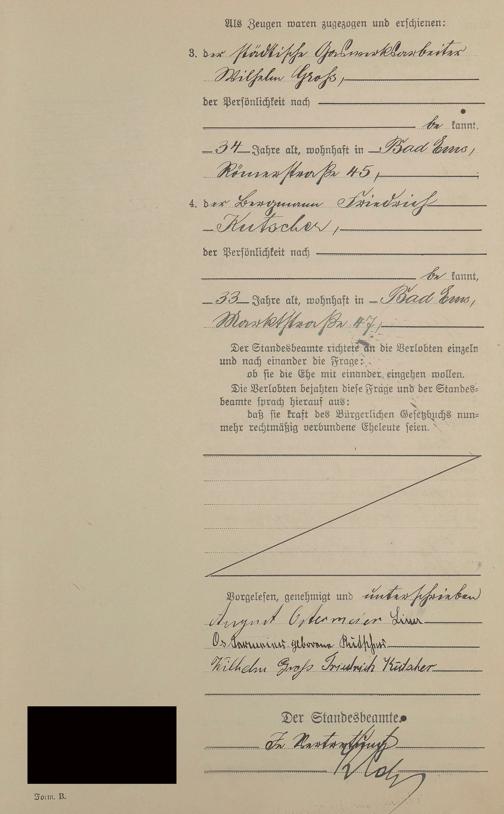 Als Zeugen waren zugezogen und erschienen:
3. der städtische Gaswerksarbeiter
Wilhelm Groß,
der Persönlichkeit nach
be kannt,
34 Jahre alt, wohnhaft in Bad Ems,
Römerstraße 45,
4. der Bergmann Friedrich
Kutscher,
der Persönlichkeit nach
be kannt,
33 Jahre alt, wohnhaft in Bad Ems,
Marktstraße 47,
Der Standesbeamte richtete an die Verlobten einzeln
und nach einander die Frage:
ob sie die Ehe mit einander eingehen wollen.
Die Verlobten bejahten diese Frage und der Standes-
beamte sprach hierauf aus:
daß sie kraft des Bürgerlichen Gesetzbuchs nun-
mehr rechtmäßig verbundene Eheleute seien.
Vorgelesen, genehmigt und unterschrieben
August Ostermeier
geborene
Wilhelm Groß Friedrich Kutscher
Der Standesbeamte.
In Vertretung
Form. B.